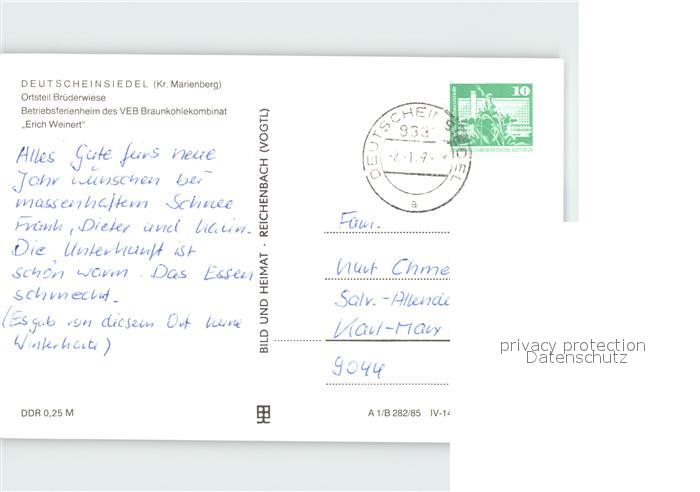 DEUTSCHEINSIEDEL (Kr. Marienberg)
Ortsteil Brüderwiese
Betriebsferienheim des VEB Braunkohlekombinat
„Erich Weinert"
Alles Gute fürs neue
Jahr wünschen bei
massenhaftem Schnee
Frank, Dieter und Karin.
Die Unterkunft ist
schön warm. Das Essen
schmeckt.
(Es gab von diesem Ort keine
Winterkarte)
DDR 0,25 M
BILD UND HEIMAT · REICHENBACH (VOGTL)
DEUTSCHEINSIEDEL
933
-2.-1.
a
10
Fam.
Kurt Chme
Salv.-Allende
Karl-Marx
9044
A 1/B 282/85 IV-14
privacy protection
Datenschutz